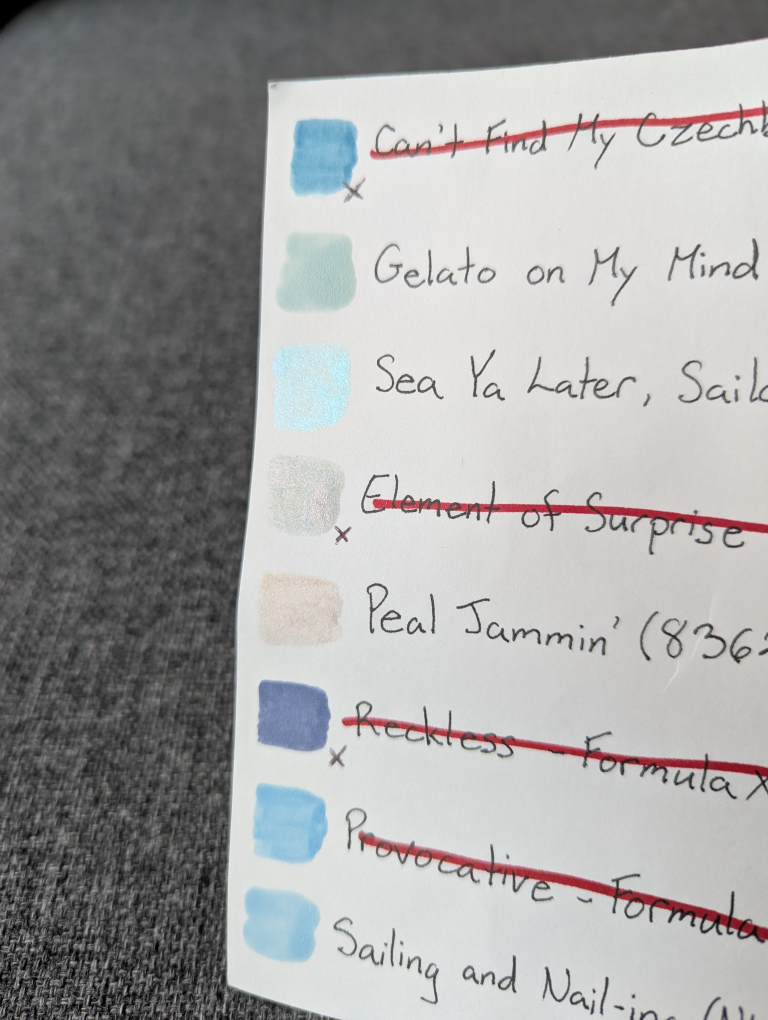 Can't Find My
Gelato on My Mind
Sea Ya Later,
Element of Surprise
Peal Jammin' (836
Reckless - Formula X
Provocative - Formula
Sailing and Nail-ing